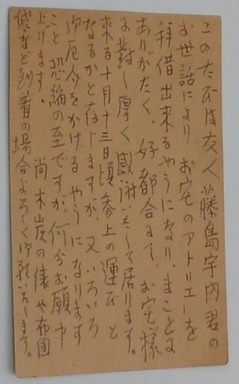 このたびは友人藤島宇内君の
お世話により、お宅のアトリエを
拝借出来るやうになり、まことに
ありがたく、好都合にて、お宅様
に対し厚く感謝いたして居ります。
来る十月十三日頃参上の運びと
なるかと存じますが、又いろいろ
御厄介をかけるやうになります
こと恐縮の至ですが、何分お願申
上げます。尚木炭の俵や布団
袋など到着の場合よろしく御願いたします。